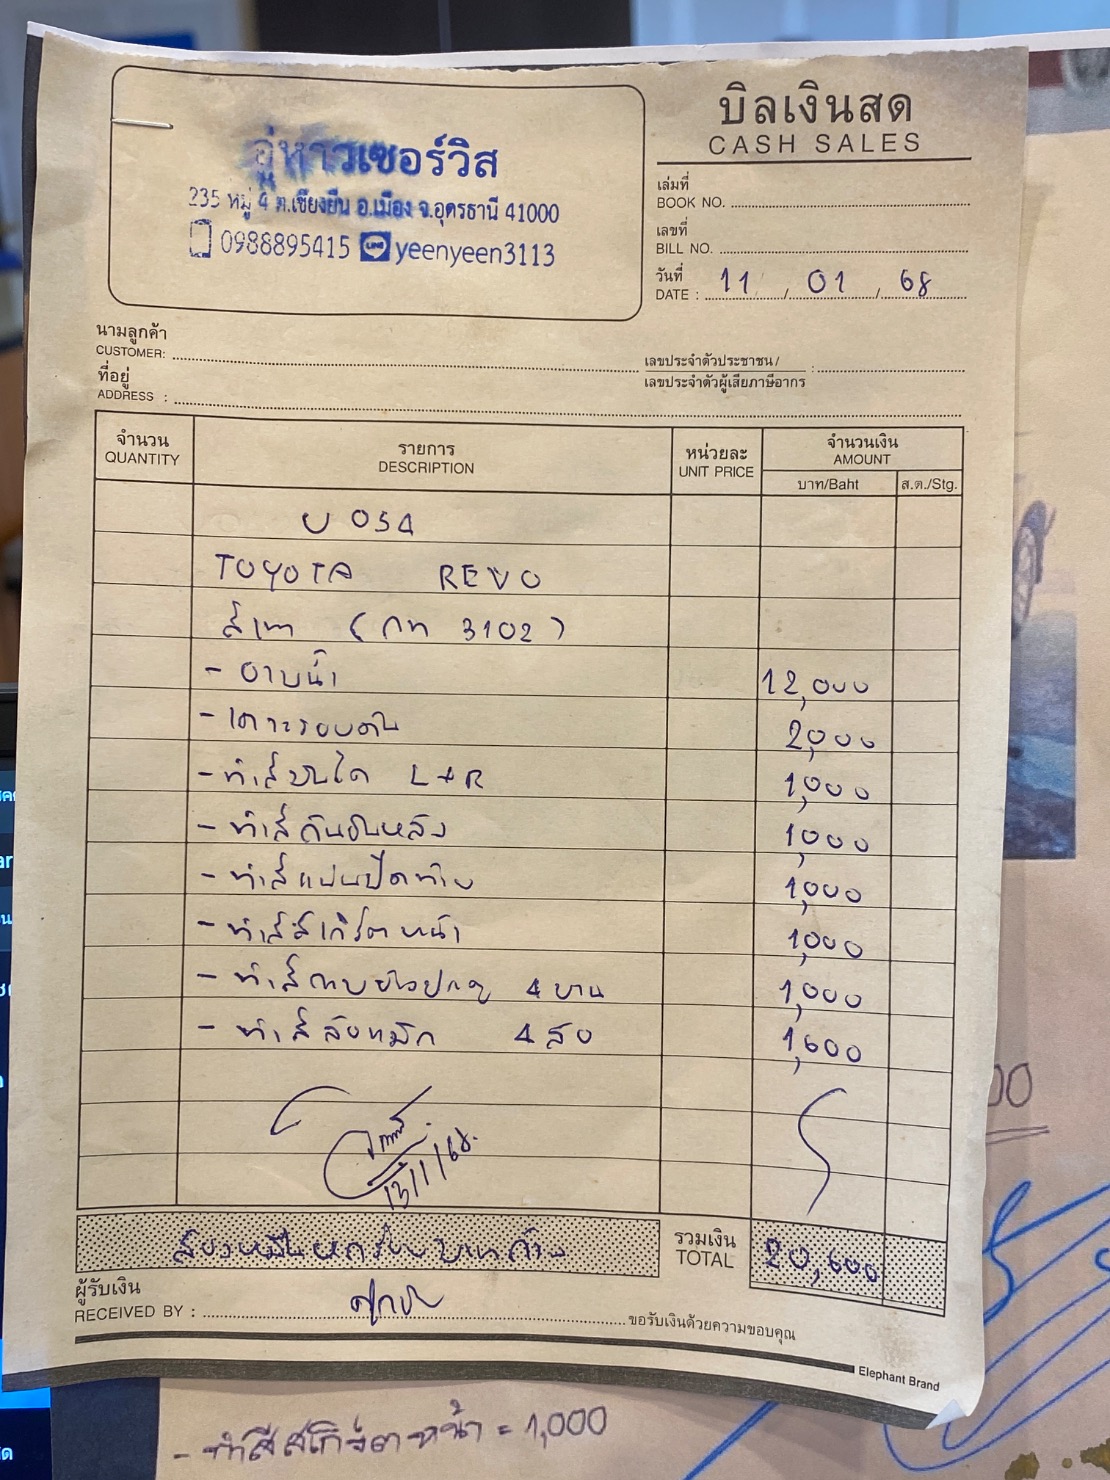 บิลเงินสด
CASH SALES
อู่หาวเซอร์วิส
235 หมู่ 4 ต.เชียงยืน อ.เมือง จ.อุดรธานี 41000
0988895415 LINE yeenyeen3113
เล่มที่
BOOK NO.
เลขที่
BILL NO.
วันที่
DATE : 11 / 01 / 68
นามลูกค้า
CUSTOMER:
เลขประจำตัวประชาชน /
เลขประจำตัวผู้เสียภาษีอากร :
ที่อยู่
ADDRESS :
จำนวน รายการ หน่วยละ จำนวนเงิน
QUANTITY DESCRIPTION UNIT PRICE AMOUNT
บาท/Baht ส.ต./Stg.
U 054
TOYOTA REVO
สีเทา (กท 3102)
- อาบน้ำ 12,000
- เคาะรอบคัน 2,000
- ทำสีบันได L+R 1,000
- ทำสีกันชนหลัง 1,000
- ทำสีแผ่นปิดท้าย 1,000
- ทำสีสเกิร์ตหน้า 1,000
- ทำสีกาบข้างประตู 4 บาน 1,000
- ทำสีล้อแม็ก 4 ล้อ 1,600
13/1/68.
สองหมื่นหกร้อยบาทถ้วน
รวมเงิน
TOTAL 20,600
ผู้รับเงิน
RECEIVED BY :
ขอรับเงินด้วยความขอบคุณ
Elephant Brand
- ทำสีสเกิร์ตหน้า = 1,000